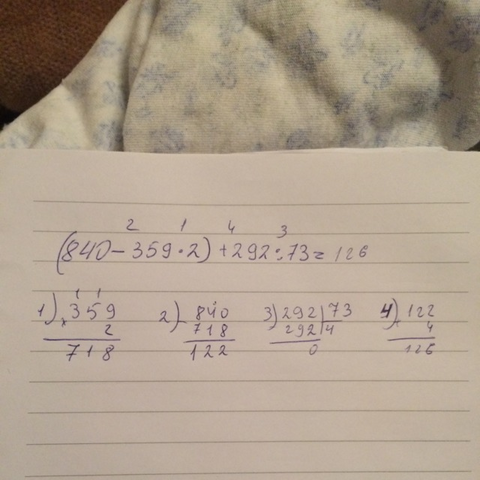 2 1 4 3
(840 - 359 · 2) + 292 : 73 = 126
1) 359 2) 840 3) 292 73 4) 122
× 2 - 718 292 4 + 4
718 122 0 126